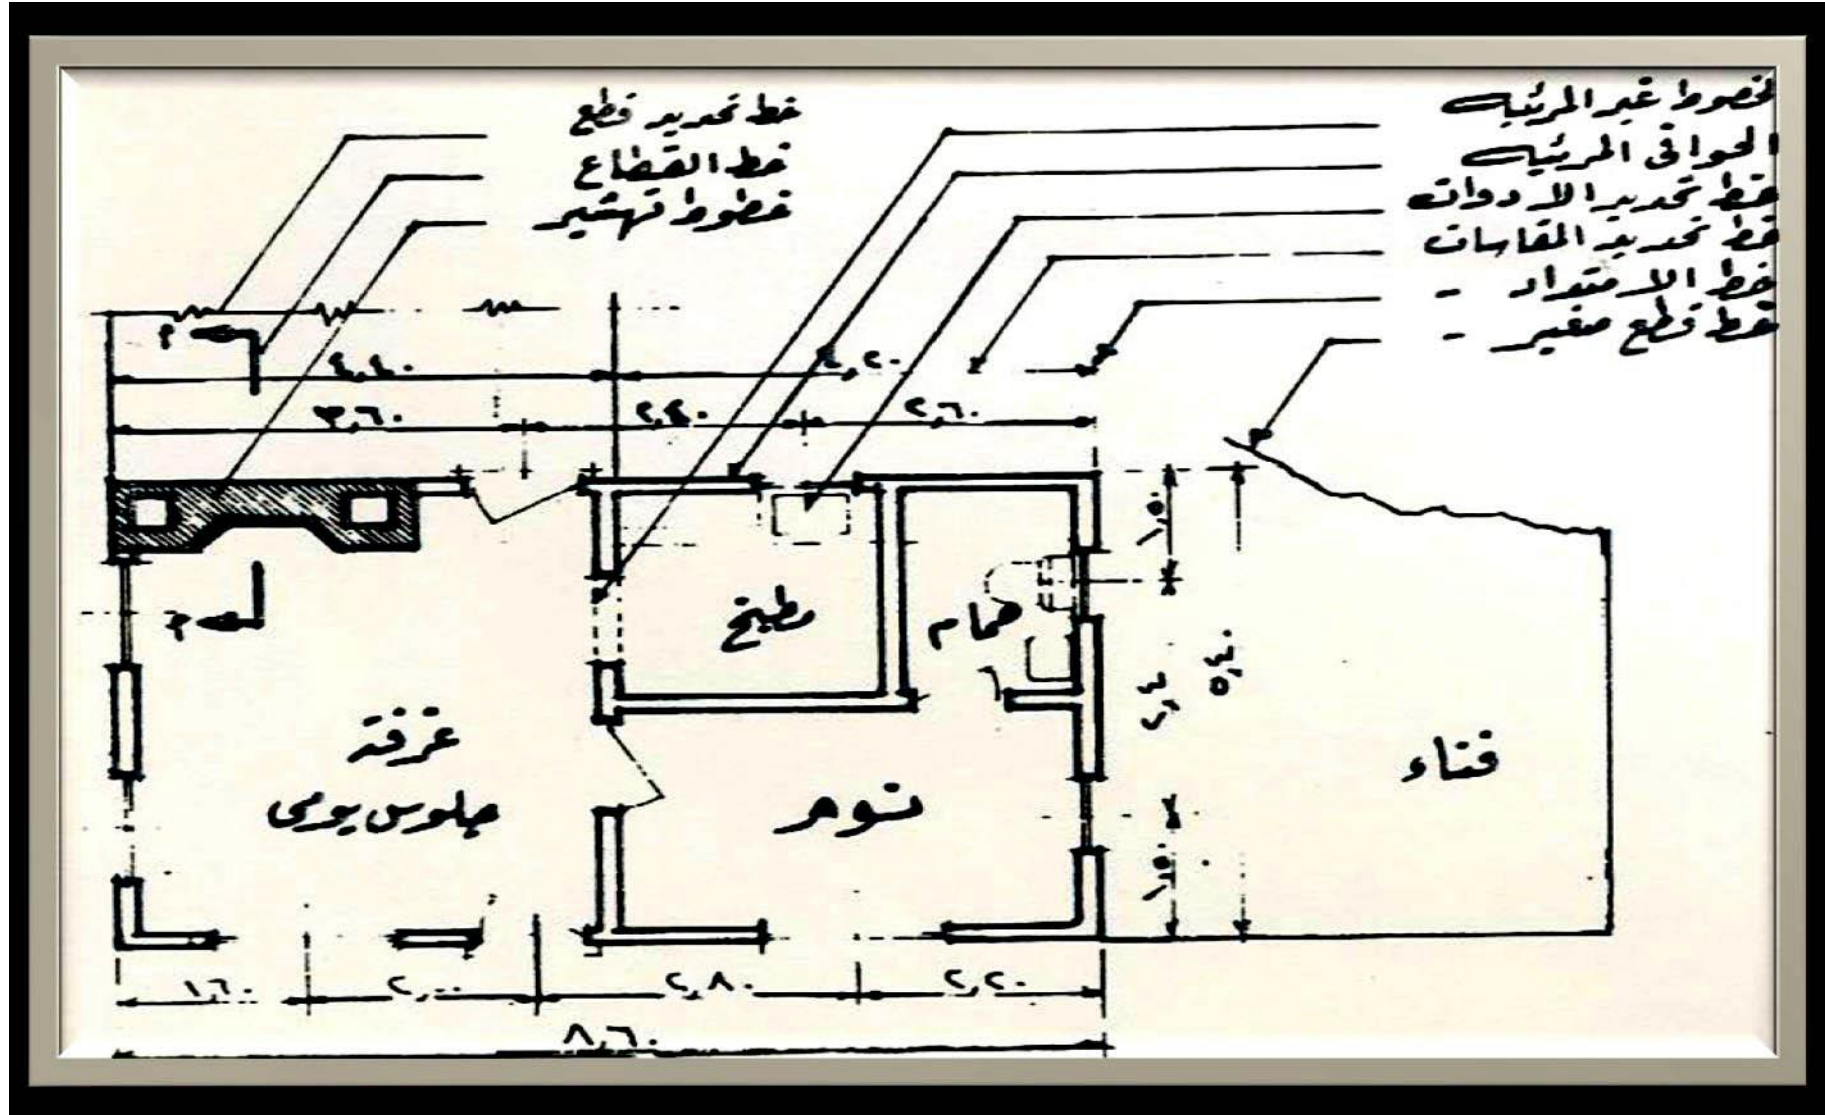 خط تحديد قطع
خط القطاع
خطوط تهشير
الخطوط غير المرئيه
الحوافى المرئيه
خط تحديد الادوات
خط تحديد المقاسات
خط الامتداد -
خط قطع صغير -
م
٤,٤٠
٤,٢٠
٣,٦٠
٢,٤٠
٢,٦٠
١,٥٠
م
مطبخ
حمام
٢,٤
٥,٤٠
غرفة
جلوس يومى
نوم
فناء
١,٥٠
١,٦٠
٢,٠٠
٢,٨٠
٢,٢٠
٨,٦٠